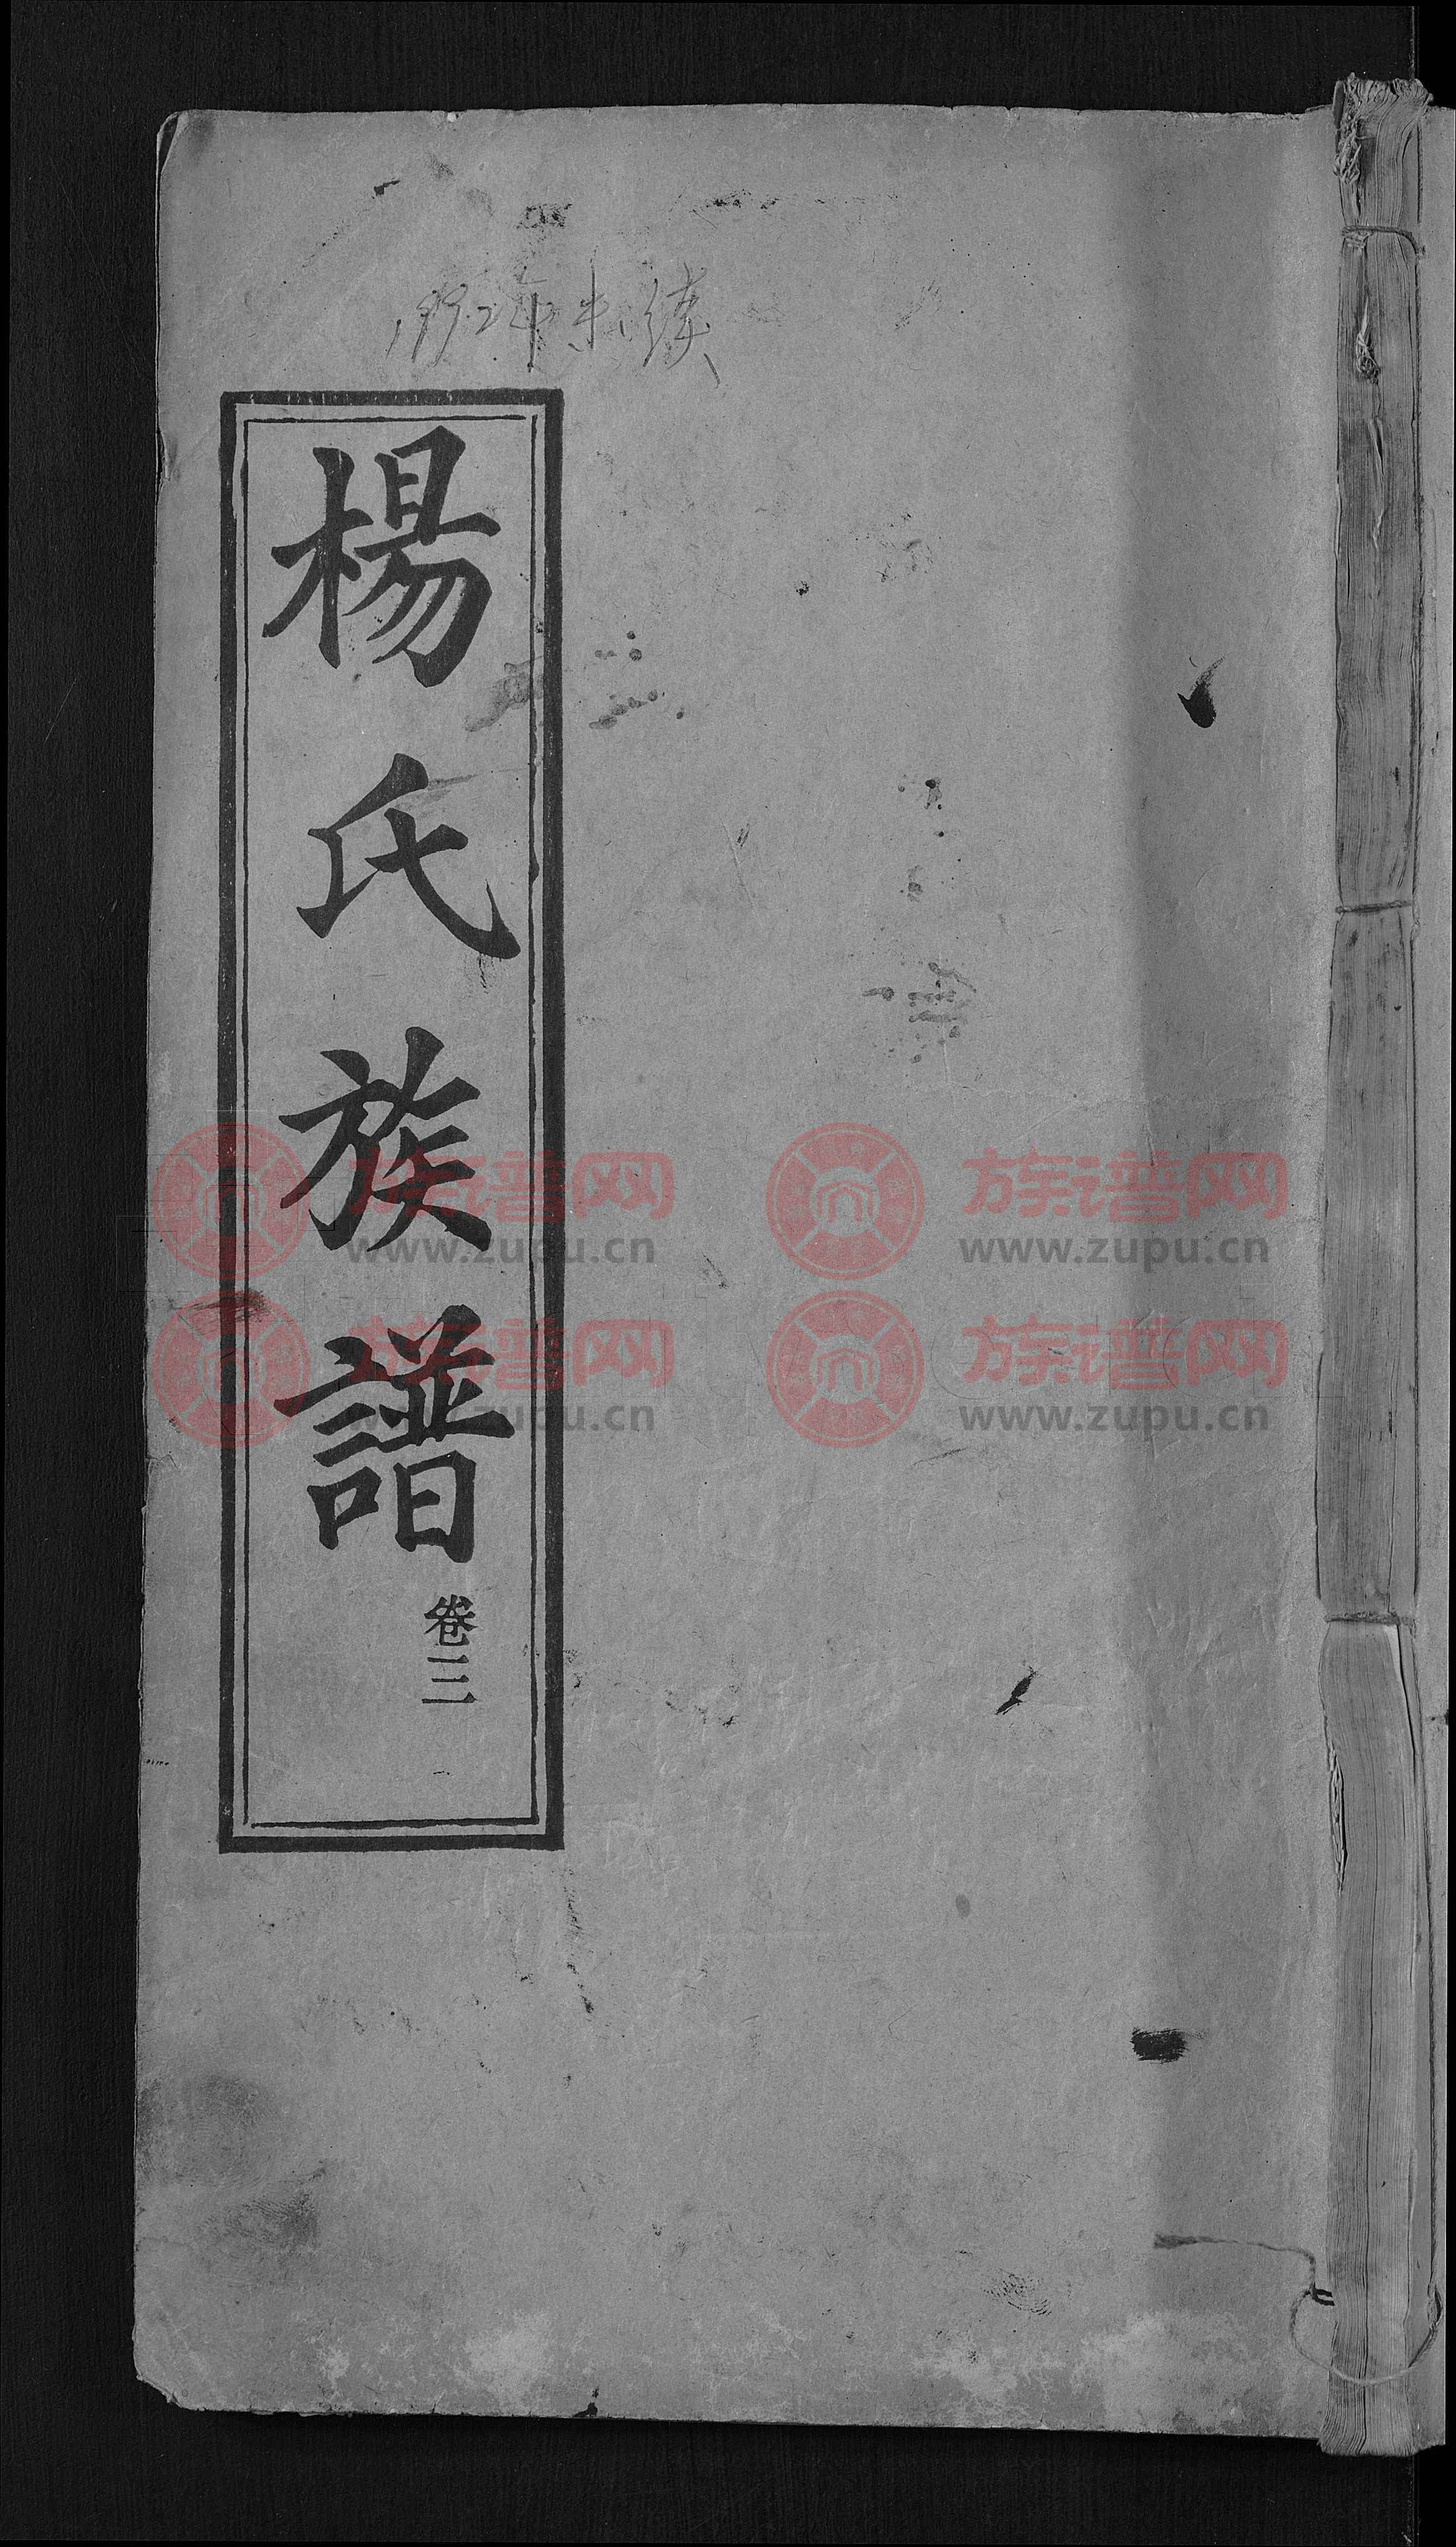 1992年未续
楊氏族譜
卷三
族谱网
www.zupu.cn
族谱网
www.zupu.cn
族谱网
www.zupu.cn
族谱网
www.zupu.cn